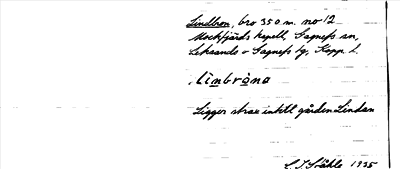 Lindbron, bro 350 m. no 12
Mockfjärds kapell, Gagnefs sn,
Leksands o Gagnefs tg, Kopp. l.
.lìnbròna
Ligger strax intill gården Lindan
1935